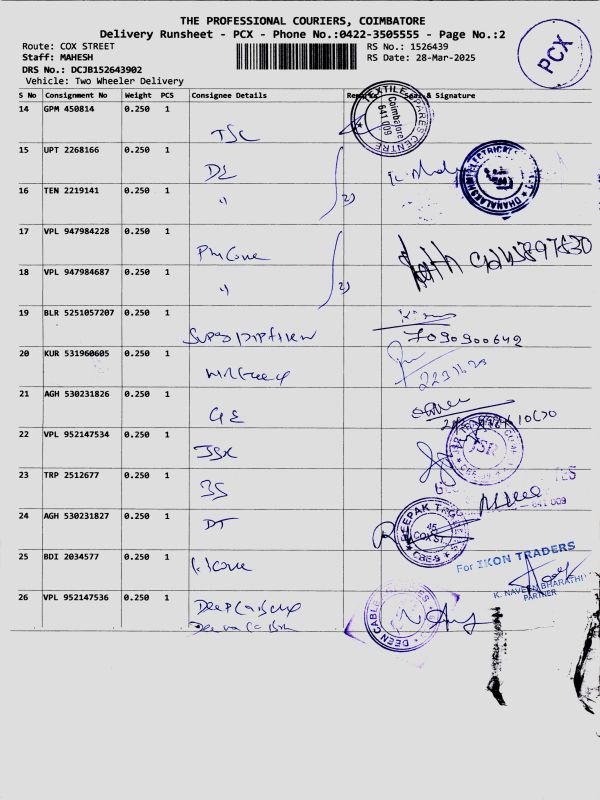 THE PROFESSIONAL COURIERS, COIMBATORE
Delivery Runsheet - PCX - Phone No.:0422-3505555 - Page No.:2
Route: COX STREET
RS No.: 1526439
Staff: MAHESH
RS Date: 28-Mar-2025
DRS No.: DCJB152643902
Vehicle: Two Wheeler Delivery
PCX
S No Consignment No Weight PCS Consignee Details Seal & Signature
14 GPM 450814 0.250 1 TSC
TEXTILE SPARES CENTRE
Coimbatore
641 009
15 UPT 2268166 0.250 1 DE
DHANALAKSHMI ELECTRICAL
16 TEN 2219141 0.250 1 " 2)
17 VPL 947984228 0.250 1
18 VPL 947984687 0.250 1 " 2)
19 BLR 5251057207 0.250 1
7090900642
20 KUR 531960605 0.250 1
21 AGH 530231826 0.250 1 GE
22 VPL 952147534 0.250 1
JSR
23 TRP 2512677 0.250 1 BS
641 009
24 AGH 530231827 0.250 1 DT
DEEPAK
COX ST
CBE-
25 BDI 2034577 0.250 1
For IKON TRADERS
K. NAVEEN BHARATHI
PARTNER
26 VPL 952147536 0.250 1
DEEN CABLE